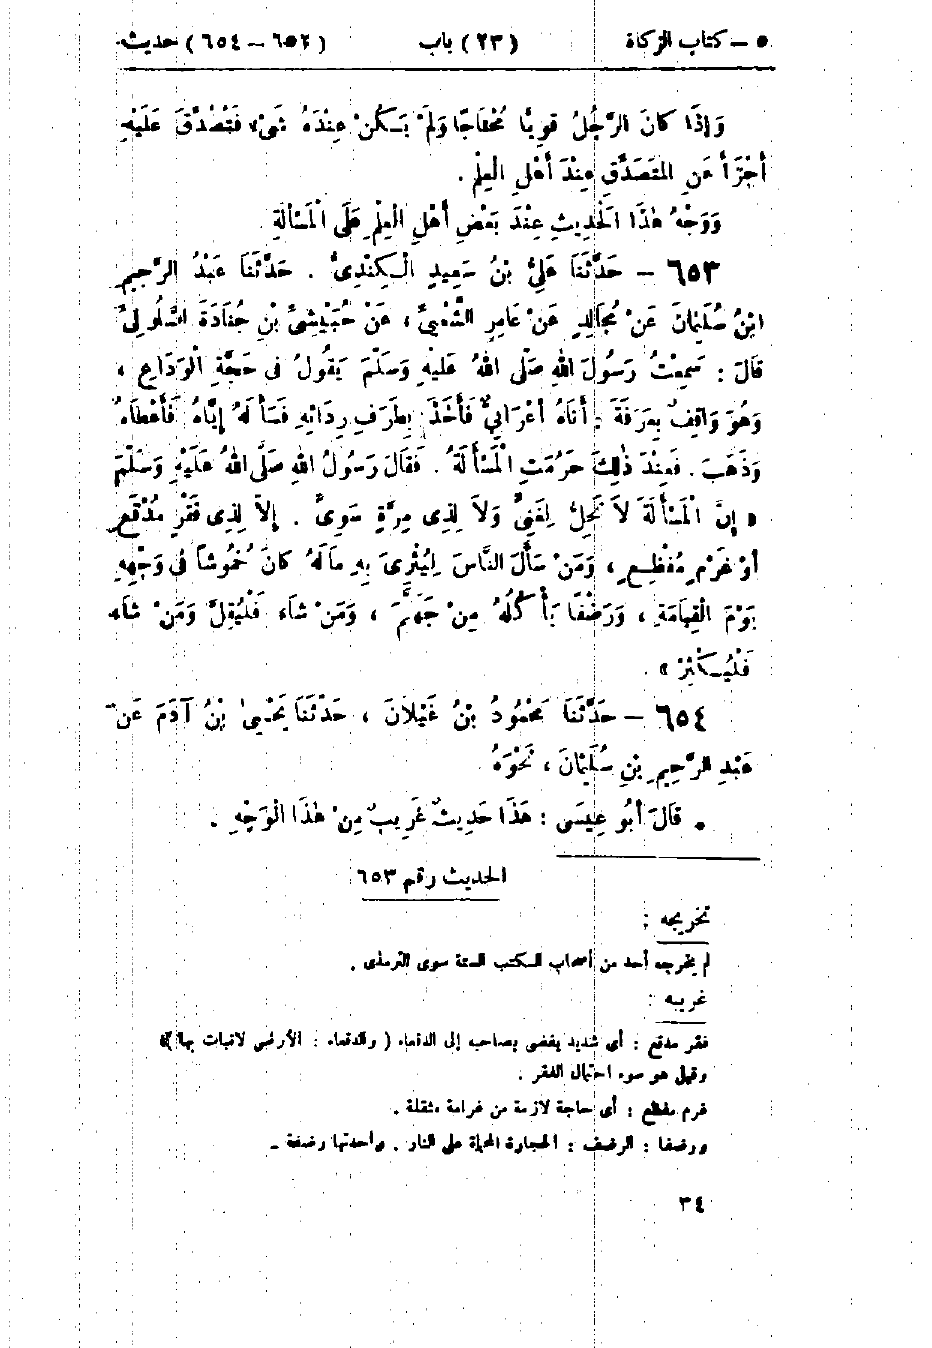 ٥ – كتاب الزكاة (٢٣) باب (٦٥٢ – ٦٥٤) حديث
وَإِذَا كَانَ الرَّجُلُ قَوِيًّا مُحْتَاجًا وَلَمْ يَكُنْ عِنْدَهُ شَىْءٌ فَتُصُدِّقَ عَلَيْهِ
أَجْزَأَ عَنِ المُتَصَدِّقِ عِنْدَ أَهْلِ العِلْمِ .
وَوَجْهُ هٰذَا الْحَدِيثِ عِنْدَ بَعْضِ أَهْلِ الْعِلْمِ عَلَى الْمَسْأَلَةِ
٦٥٣ – حَدَّثَنَا عَلِيُّ بْنُ سَعِيدٍ الْكِنْدِيُّ . حَدَّثَنَا عَبْدُ الرَّحِيمِ
ابْنُ سُلَيْمَانَ عَنْ مُجَالِدٍ عَنْ عَامِرٍ الشَّعْبِيِّ ، عَنْ حُبْشِيِّ بْنِ جُنَادَةَ السَّلُولِيِّ
قَالَ : سَمِعْتُ رَسُولَ اللهِ صَلَّى اللهُ عَلَيْهِ وَسَلَّمَ يَقُولُ فِى حَجَّةِ الْوَدَاعِ ،
وَهُوَ وَاقِفٌ بِعَرَفَةَ : أَتَاهُ أَعْرَابِيٌّ فَأَخَذَ بِطَرَفِ رِدَائِهِ فَسَأَلَهُ إِيَّاهُ فَأَعْطَاهُ
وَذَهَبَ . فَعِنْدَ ذٰلِكَ حَرُمَتِ الْمَسْأَلَةُ . فَقَالَ رَسُولُ اللهِ صَلَّى اللهُ عَلَيْهِ وَسَلَّمَ
« إِنَّ الْمَسْأَلَةَ لاَ تَحِلُّ لِغَنِيٍّ وَلاَ لِذِى مِرَّةٍ سَوِىٍّ . إِلاَّ لِذِى فَقْرٍ مُدْقِعٍ
أَوْ غُرْمٍ مُفْظِعٍ ، وَمَنْ سَأَلَ النَّاسَ لِيُثْرِىَ بِهِ مَالَهُ كَانَ خُمُوشًا فِى وَجْهِهِ
يَوْمَ الْقِيَامَةِ ، وَرَضْفًا يَأْكُلُهُ مِنْ جَهَنَّمَ ، وَمَنْ شَاءَ فَلْيُقِلَّ وَمَنْ شَاءَ
فَلْيُكْثِرْ » .
٦٥٤ – حَدَّثَنَا مَحْمُودُ بْنُ غَيْلَانَ ، حَدَّثَنَا يَحْيَىٰ بْنُ آدَمَ عَنْ
عَبْدِ الرَّحِيمِ بْنِ سُلَيْمَانَ ، نَحْوَهُ
• قَالَ أَبُو عِيسَى : هَذَا حَدِيثٌ غَرِيبٌ مِنْ هٰذَا الْوَجْهِ .
الحديث رقم ٦٥٣
تخريجه :
لم يخرجه أحد من أصحاب الكتب الستة سوى الترمذى .
غريبه :
فقر مدقع : أى شديد يفضى بصاحبه إلى الدقعاء ( والدقعاء : الأرض لانبات بها )
وقيل هو سوء احتمال الفقر .
غرم مفظع : أى حاجة لازمة من غرامة مثقلة .
ورضفا : الرضف : الحجارة المحماة على النار . واحدتها رضفة –
٣٤